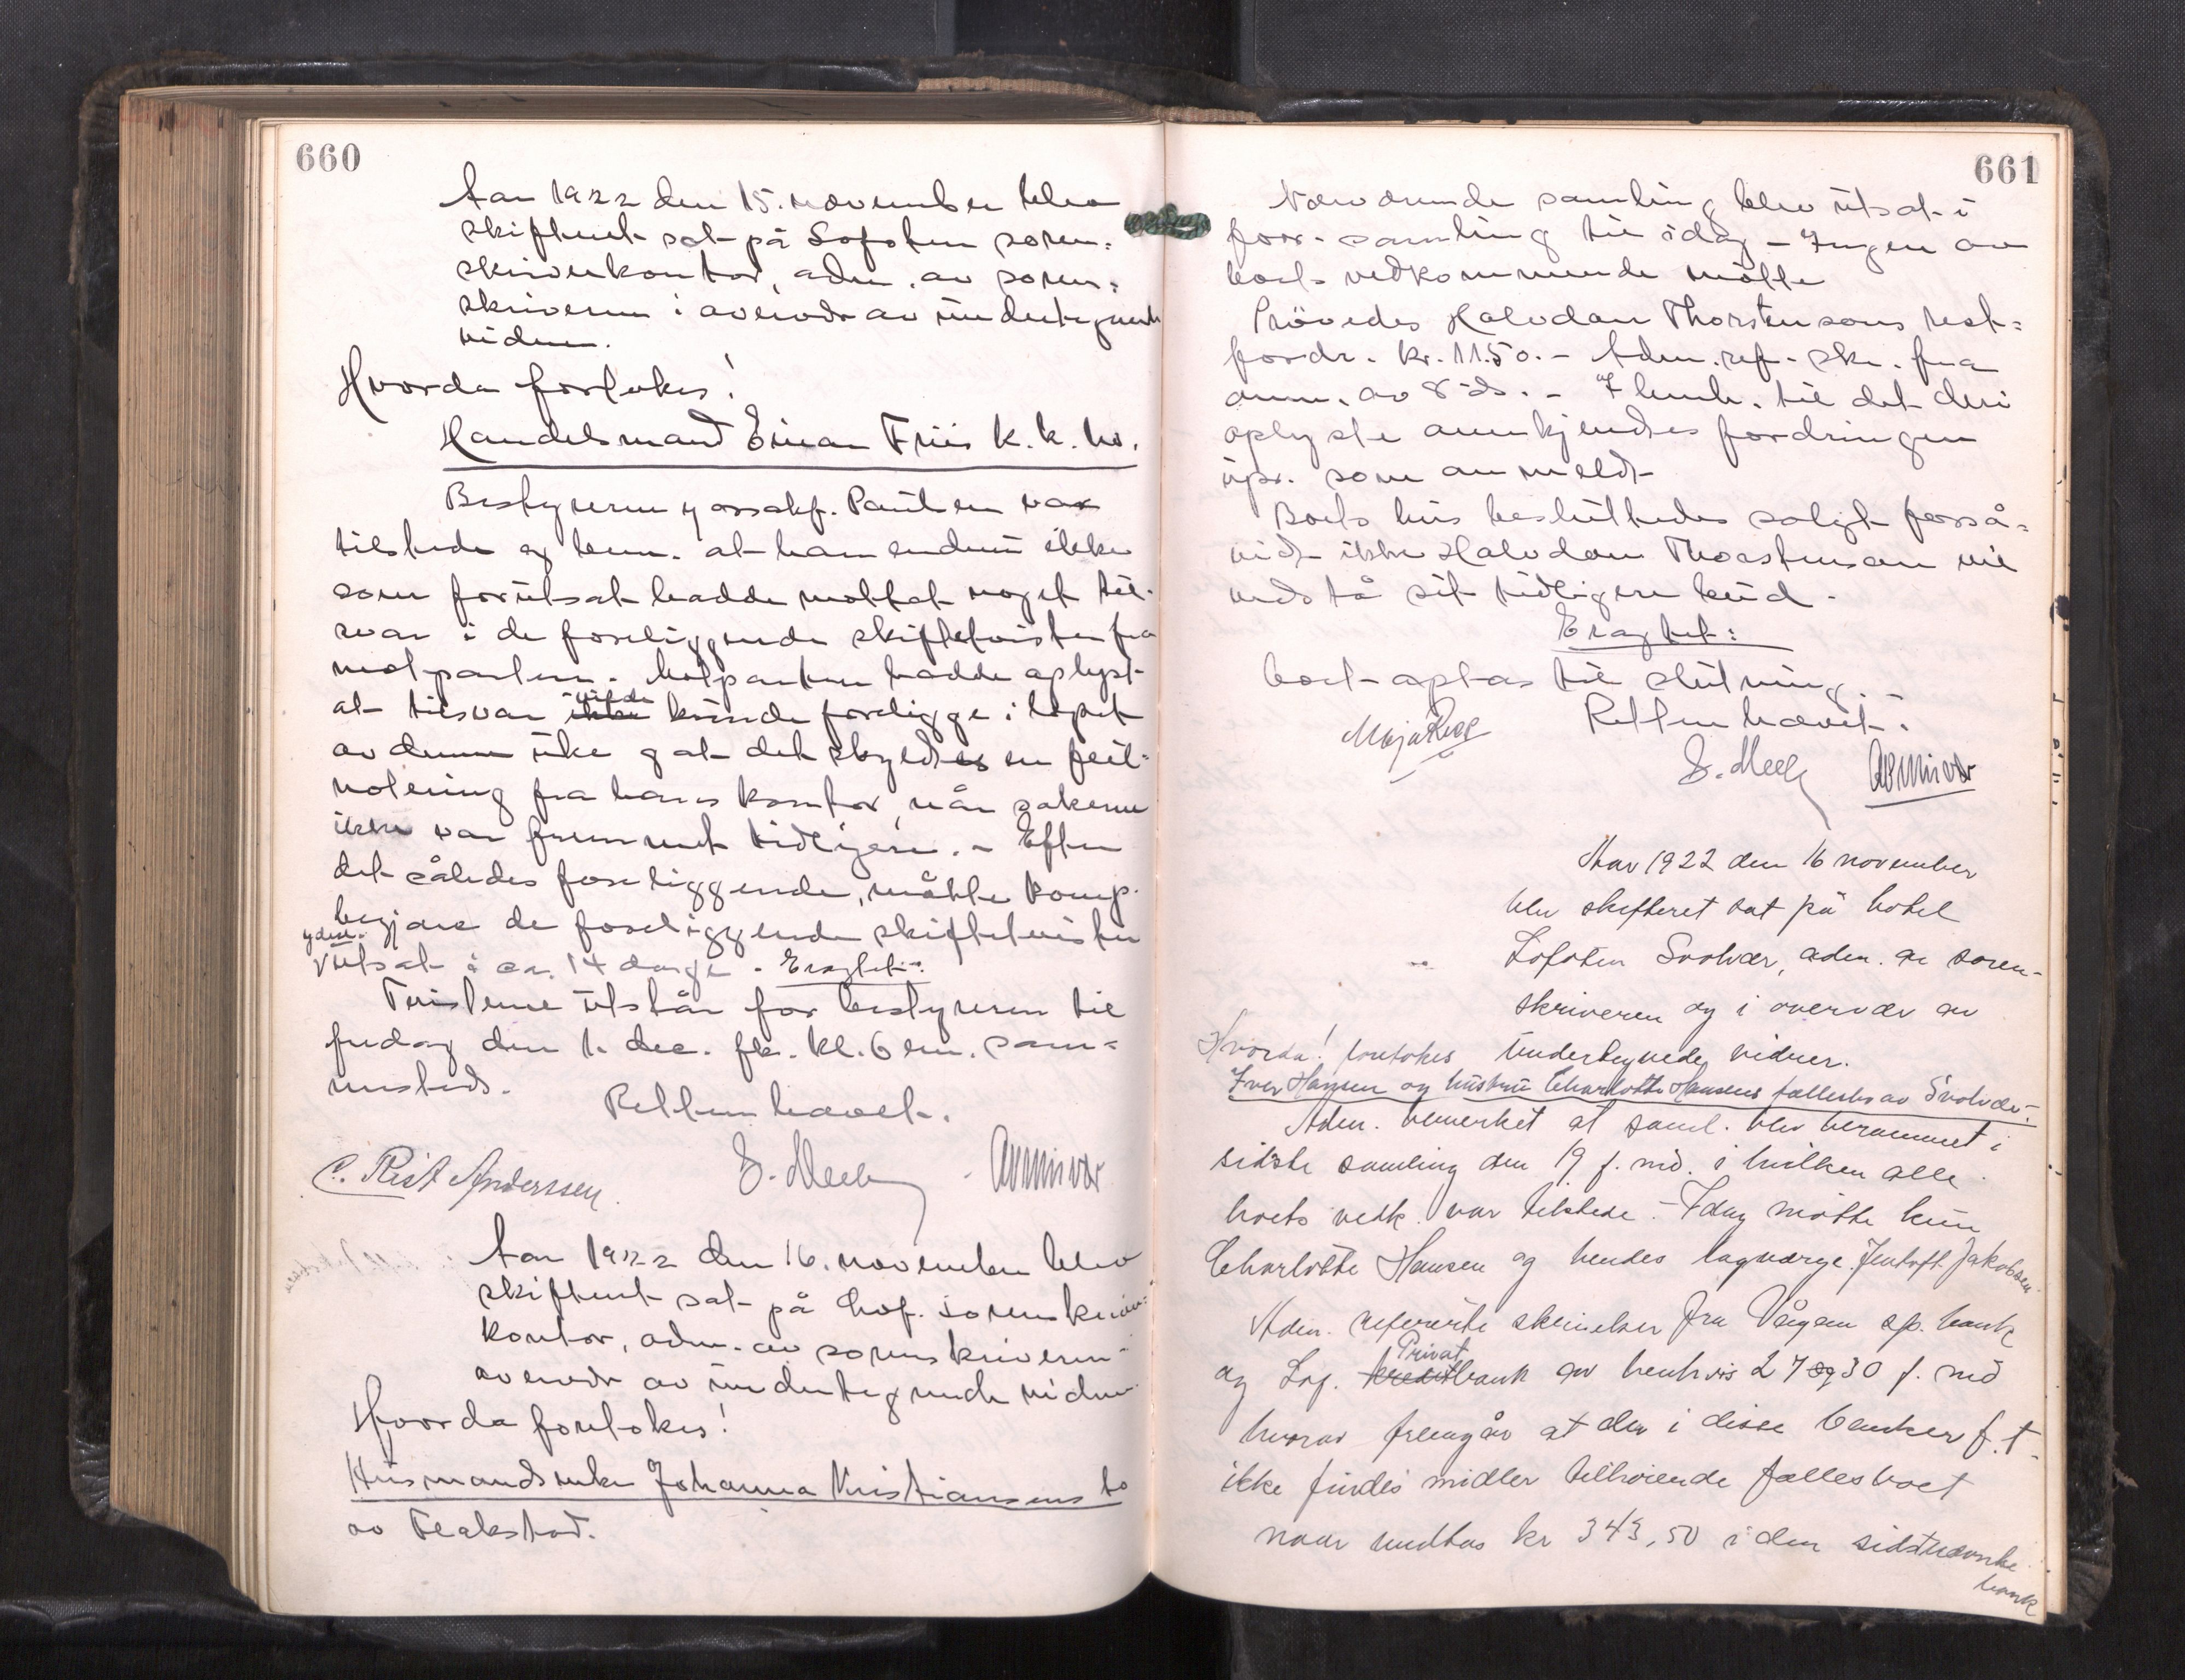 660
Aar 1922 den 15. november blev
skifteret sat på Lofoten soren=
skriverkontor, adm. av soren=
skriveren i overvær av undertegnede
vidner.
Hvorda foretokes!
Handelsmand Einar Friis k.k. bo.
Bestyreren ovrsakf. Paulsen var
tilstede og bem. at han endnu ikke
som forutsat hadde mottat noget til-
svar i de foreliggende skiftetvister fra
motparten. Motparten hadde oplyst
at tilsvar ikke vilde kunde foreligge i løpet
av denne uke og at det skyldes en feil=
notering fra hans kontor, når sakerne
ikke var fremmet tidligere. - Efter
det således foreliggende, måtte komp.
begjære de foreliggende skiftetvister
yderl. utsat i ca. 14 dage. Eragtet:
Tvisterne utstår for bestyreren til
fredag den 1. dec. fk. kl. 6 em. sam=
mesteds.
Retten hævet.
C. Rist Anderssen
Aar 1922 den 16. november blev
skifteret sat på Lof. sorenskriver=
kontor, adm. av sorenskriveren i
overvær av undertegnede vidner
Hvorda foretokes!
Husmandsenke Johanna Kristiansens bo
av Flakstad.
661
Nærværende samling blev utsat i
forr. samling til idag - Ingen av
boets vedkommende møtte
Prøvedes Halvdan Thorstensons rest=
fordr. kr. 11.50. - Adm. ref. skr. fra
anm. av 8 ds. - I henh. til det deri
oplyste anerkjendtes fordringen
upr. som anmeldt
Boets hus besluttedes solgt forså=
vidt ikke Halvdan Thorstensen vil
vedstå sit tidligere bud.
Eragtet:
boet optas til slutning. -
Retten hævet.
Aar 1922 den 16 november
blev skifteret sat på hotel
Lofoten Svolvær, adm. av soren-
skriveren og i overvær av
Hvorda! foretokes undertegnede vidner.
Iver Hansen og hustru Charlotte Hansens fællesbo av Svolvær.
Adm. bemerket at saml. blev berammet i
sidste samling den 19 f. md. i hvilken alle
boets vedk. var tilstede. - Idag møtte kun
Charlotte Hansen og hendes lagværge Jentoft Jakobsen
Adm. refererte skrivelser fra Vågan sp. bank
og Lof. kredit Privat bank av henhvis 27 og 30 f. md
hvorav fremgår at der i disse banker f. t.
ikke findes midler tilhørende fællesboet
naar undtas kr 343,50 i den sidstnævnte
bank